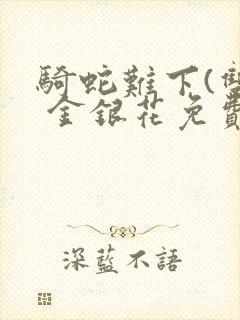 騎蛇難下(雙
金銀花免費
深藍不語